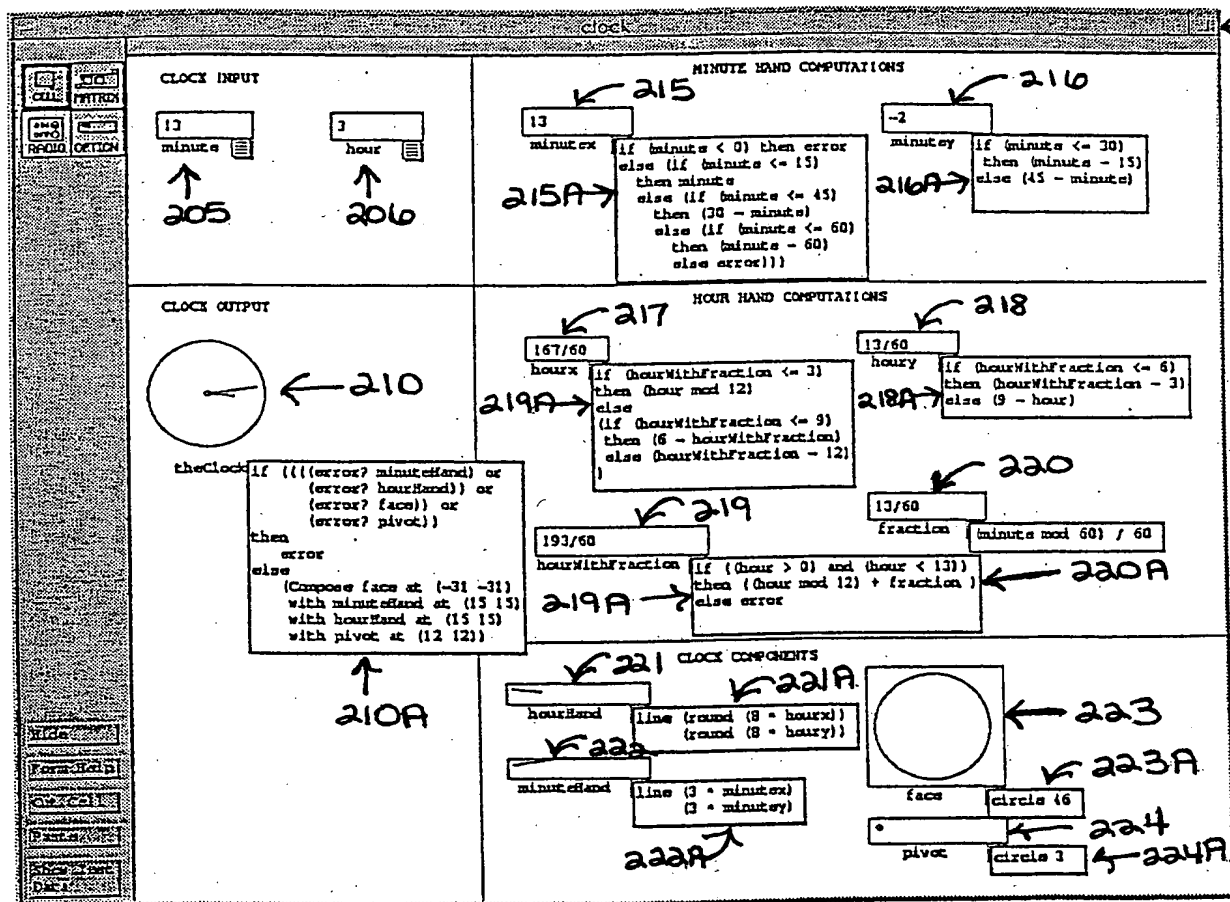 clock
CELL MATRIX
RADIO OPTION
CLOCK INPUT
13
minute
3
hour
205
206
MINUTE HAND COMPUTATIONS
215
13
minutex
215A
if (minute < 0) then error
else (if (minute <= 15)
then minute
else (if (minute <= 45)
then (30 - minute)
else (if (minute <= 60)
then (minute - 60)
else error)))
216
-2
minutey
216A
if (minute <= 30)
then (minute - 15)
else (45 - minute)
CLOCK OUTPUT
210
theClock
if ((((error? minuteHand) or
(error? hourHand)) or
(error? face)) or
(error? pivot))
then
error
else
(Compose face at (-31 -31)
with minuteHand at (15 15)
with hourHand at (15 15)
with pivot at (12 12))
210A
HOUR HAND COMPUTATIONS
217
167/60
hourx
219A
if (hourWithFraction <= 3)
then (hour mod 12)
else
(if (hourWithFraction <= 9)
then (6 - hourWithFraction)
else (hourWithFraction - 12)
)
218
13/60
houry
218A
if (hourWithFraction <= 6)
then (hourWithFraction - 3)
else (9 - hour)
219
193/60
hourWithFraction
219A
if ((hour > 0) and (hour < 13))
then ((hour mod 12) + fraction )
else error
220
13/60
fraction
(minute mod 60) / 60
220A
CLOCK COMPONENTS
221
hourHand
221A
line (round (8 * hourx))
(round (8 * houry))
222
minuteHand
line (3 * minutex)
(3 * minutey)
222A
223
face
223A
circle 46
224
pivot
circle 3
224A
Hide
Form Help
Cut Cell
Paste
Show Inst